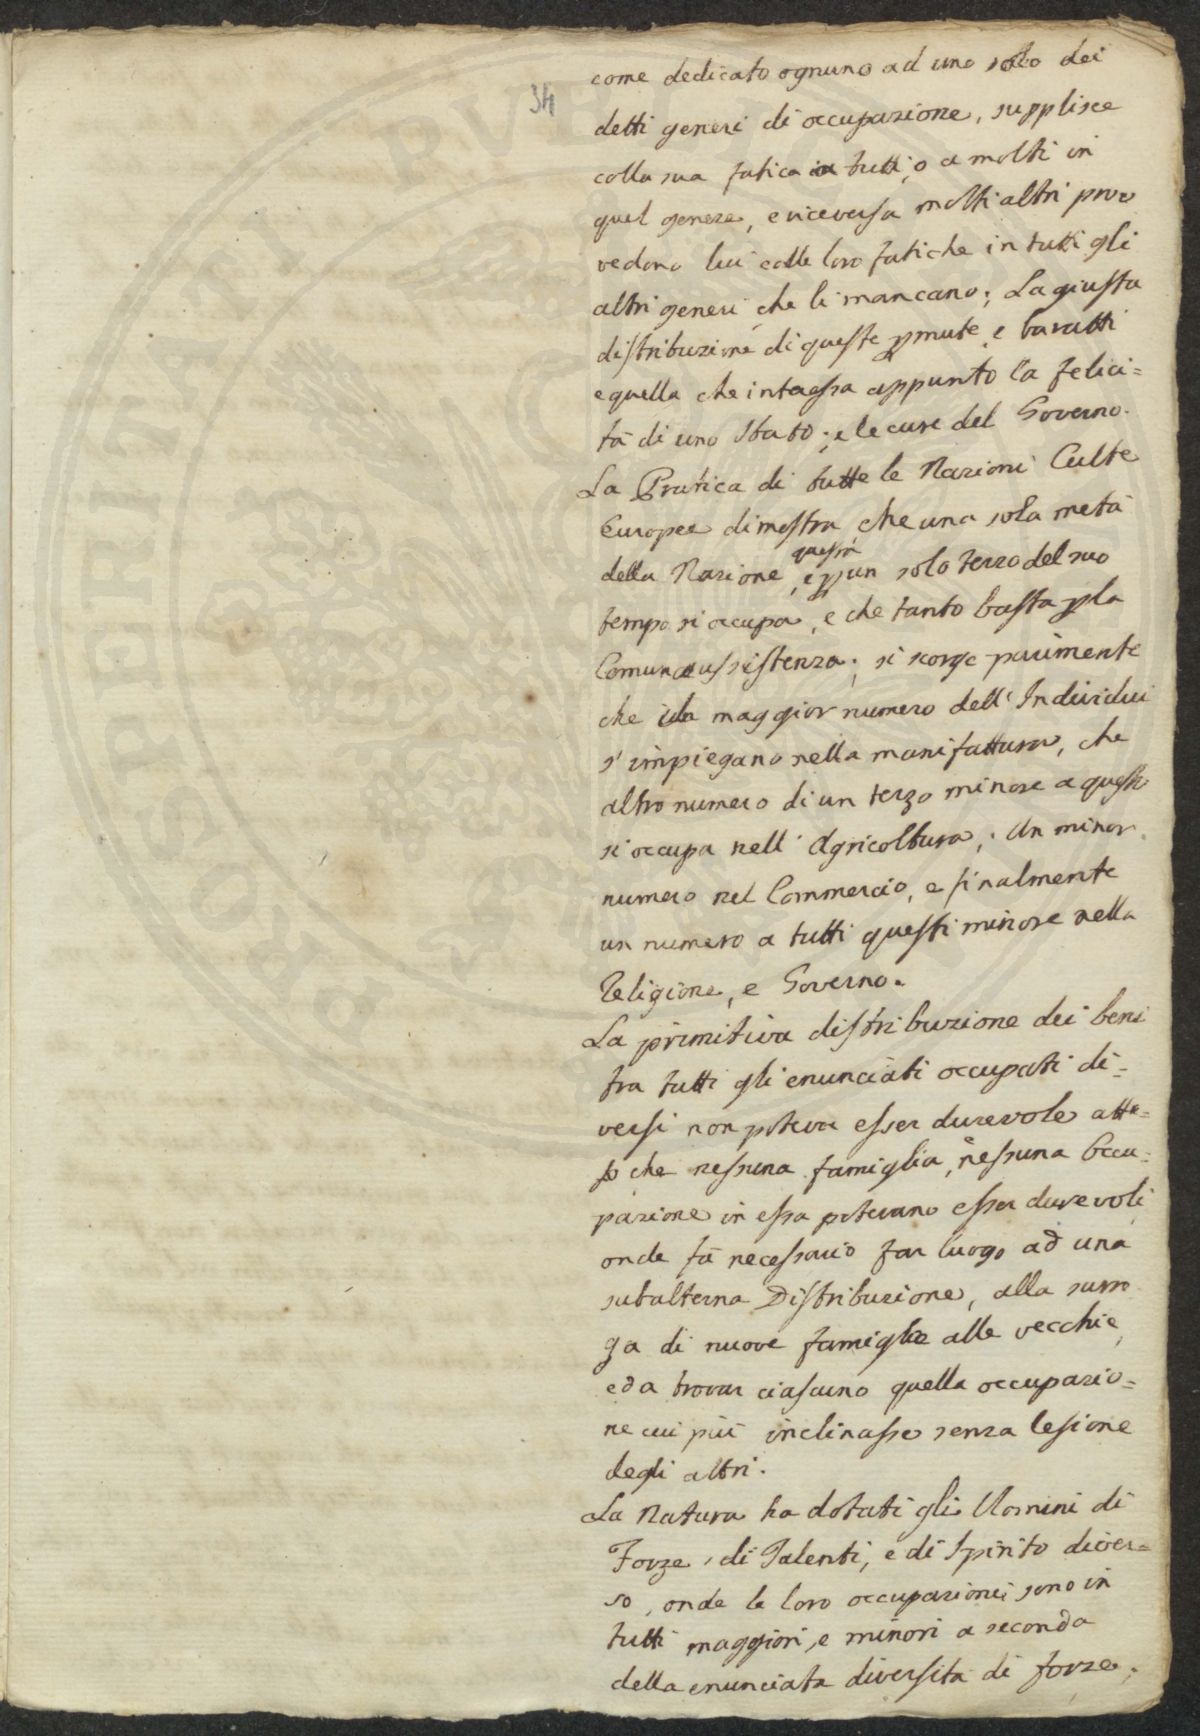 34
come dedicato ognuno ad uno solo dei
detti generi di occupazione, supplisce
colla sua fatica a tutti, o a molti in
quel genere, e viceversa molti altri prov
vedono lui colle loro fatiche in tutti gli
altri generi che li mancano; La giusta
distribuzione di queste pmute, e baratti
e quella che interessa appunto la felici=
tà di uno Stato; e le cure del Governo.
La Pratica di tutte le Nazioni Culte
Europee dimostra, che una sola metà
della Nazione, e questa p un solo terzo del suo
tempo si occupa, e che tanto basta p la
Comune sussistenza; si scorge parimente
che il maggior numero dell' Individui
s' impiegano nella manifattura, che
altro numero di un terzo minore a questi
si occupa nell' Agricoltura; Un minor
numero nel Commercio, e finalmente
un numero a tutti questi minore nella
Religione, e Governo.
La primitiva distribuzione dei beni
tra tutti gli enunciati occupati di=
versi non poteva esser durevole atte=
so che nessuna famiglia, nessuna Occu=
pazione in essa potevano esser durevoli
onde fù necessario far luogo ad una
subalterna Distribuzione, alla surro
ga di nuove famiglie alle vecchie,
ed a trovar ciascuno quella occupazio=
ne cui più inclinasse senza lesione
degli altri.
La Natura ha dotati gli Uomini di
Forze, di Talenti, e di Spirito diver=
so, onde le loro occupazioni sono in
tutti maggiori, e minori a seconda
della enunciata diversità di forze,